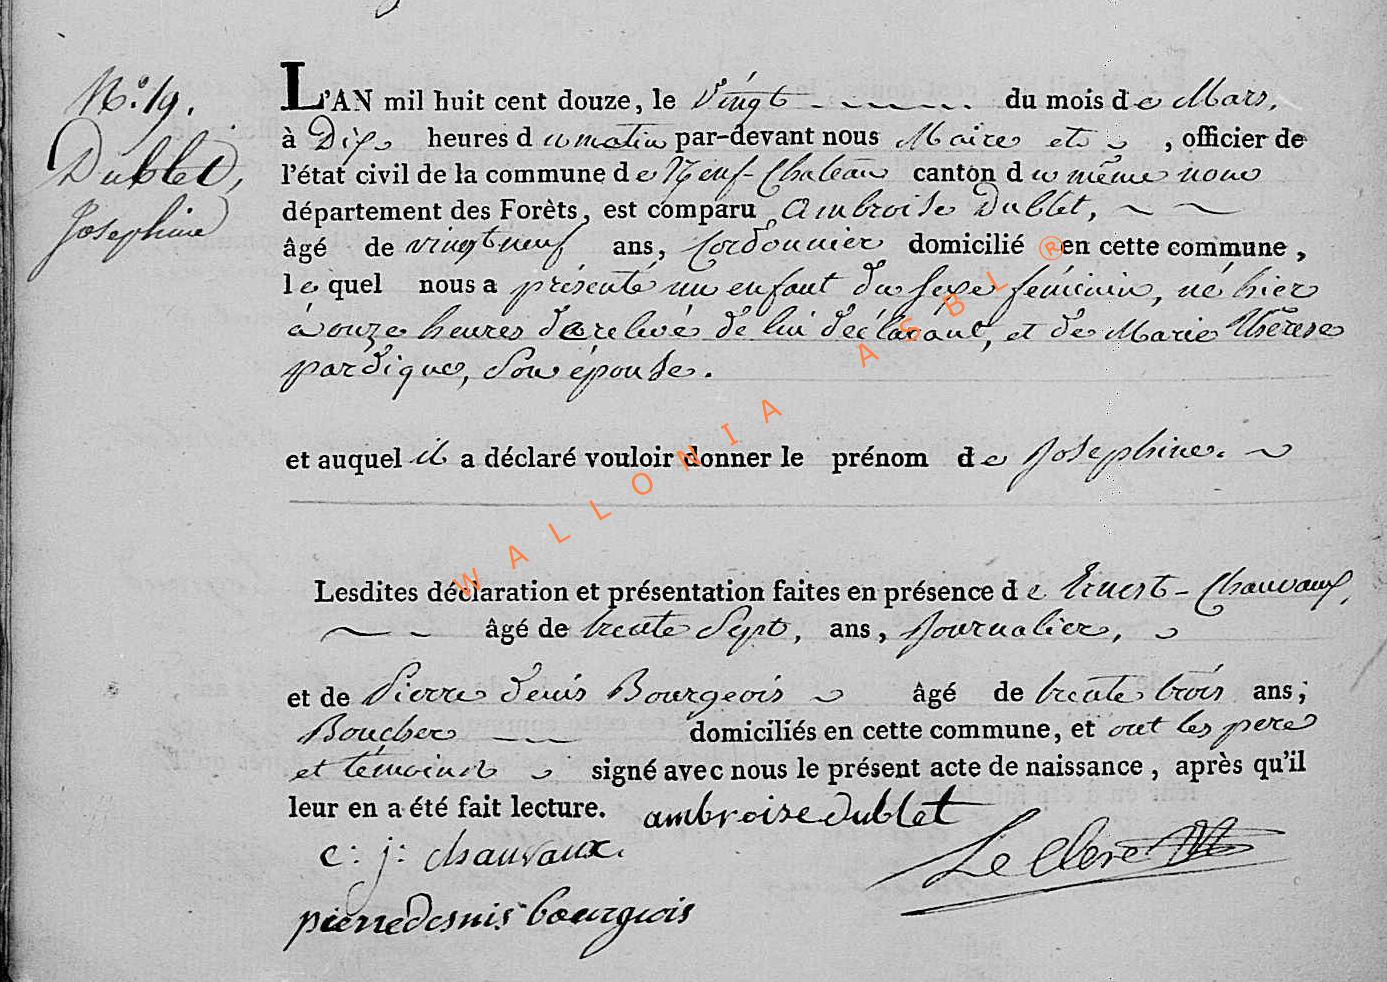 N.° 19.
Dublet,
Josephine
L'AN mil huit cent douze, le Vingt du mois de Mars,
à Dix heures du matin par-devant nous Maire et, officier de
l'état civil de la commune de Neuf-Chateau canton du même nom
département des Forêts, est comparu Ambroise Dublet,
âgé de vingt neuf ans, Cordonnier domicilié en cette commune,
lequel nous a présenté un enfant du sexe féminin, né hier
à onze heures de relevé de lui déclarant, et de Marie Thérese
pardique, Son épouse.
et auquel il a déclaré vouloir donner le prénom de Josephine.
Lesdites déclaration et présentation faites en présence de Chauvaux,
âgé de trente Sept, ans, Journalier,
et de Pierre denis Bourgeois âgé de trente trois ans,
Boucher domiciliés en cette commune, et ont les pere
et témoins signé avec nous le présent acte de naissance, après qu'il
leur en a été fait lecture. ambroise dublet
c: j: chauvaux.
Le Clere
pierre desnis bourgeois
WALLONIA ASBL ®